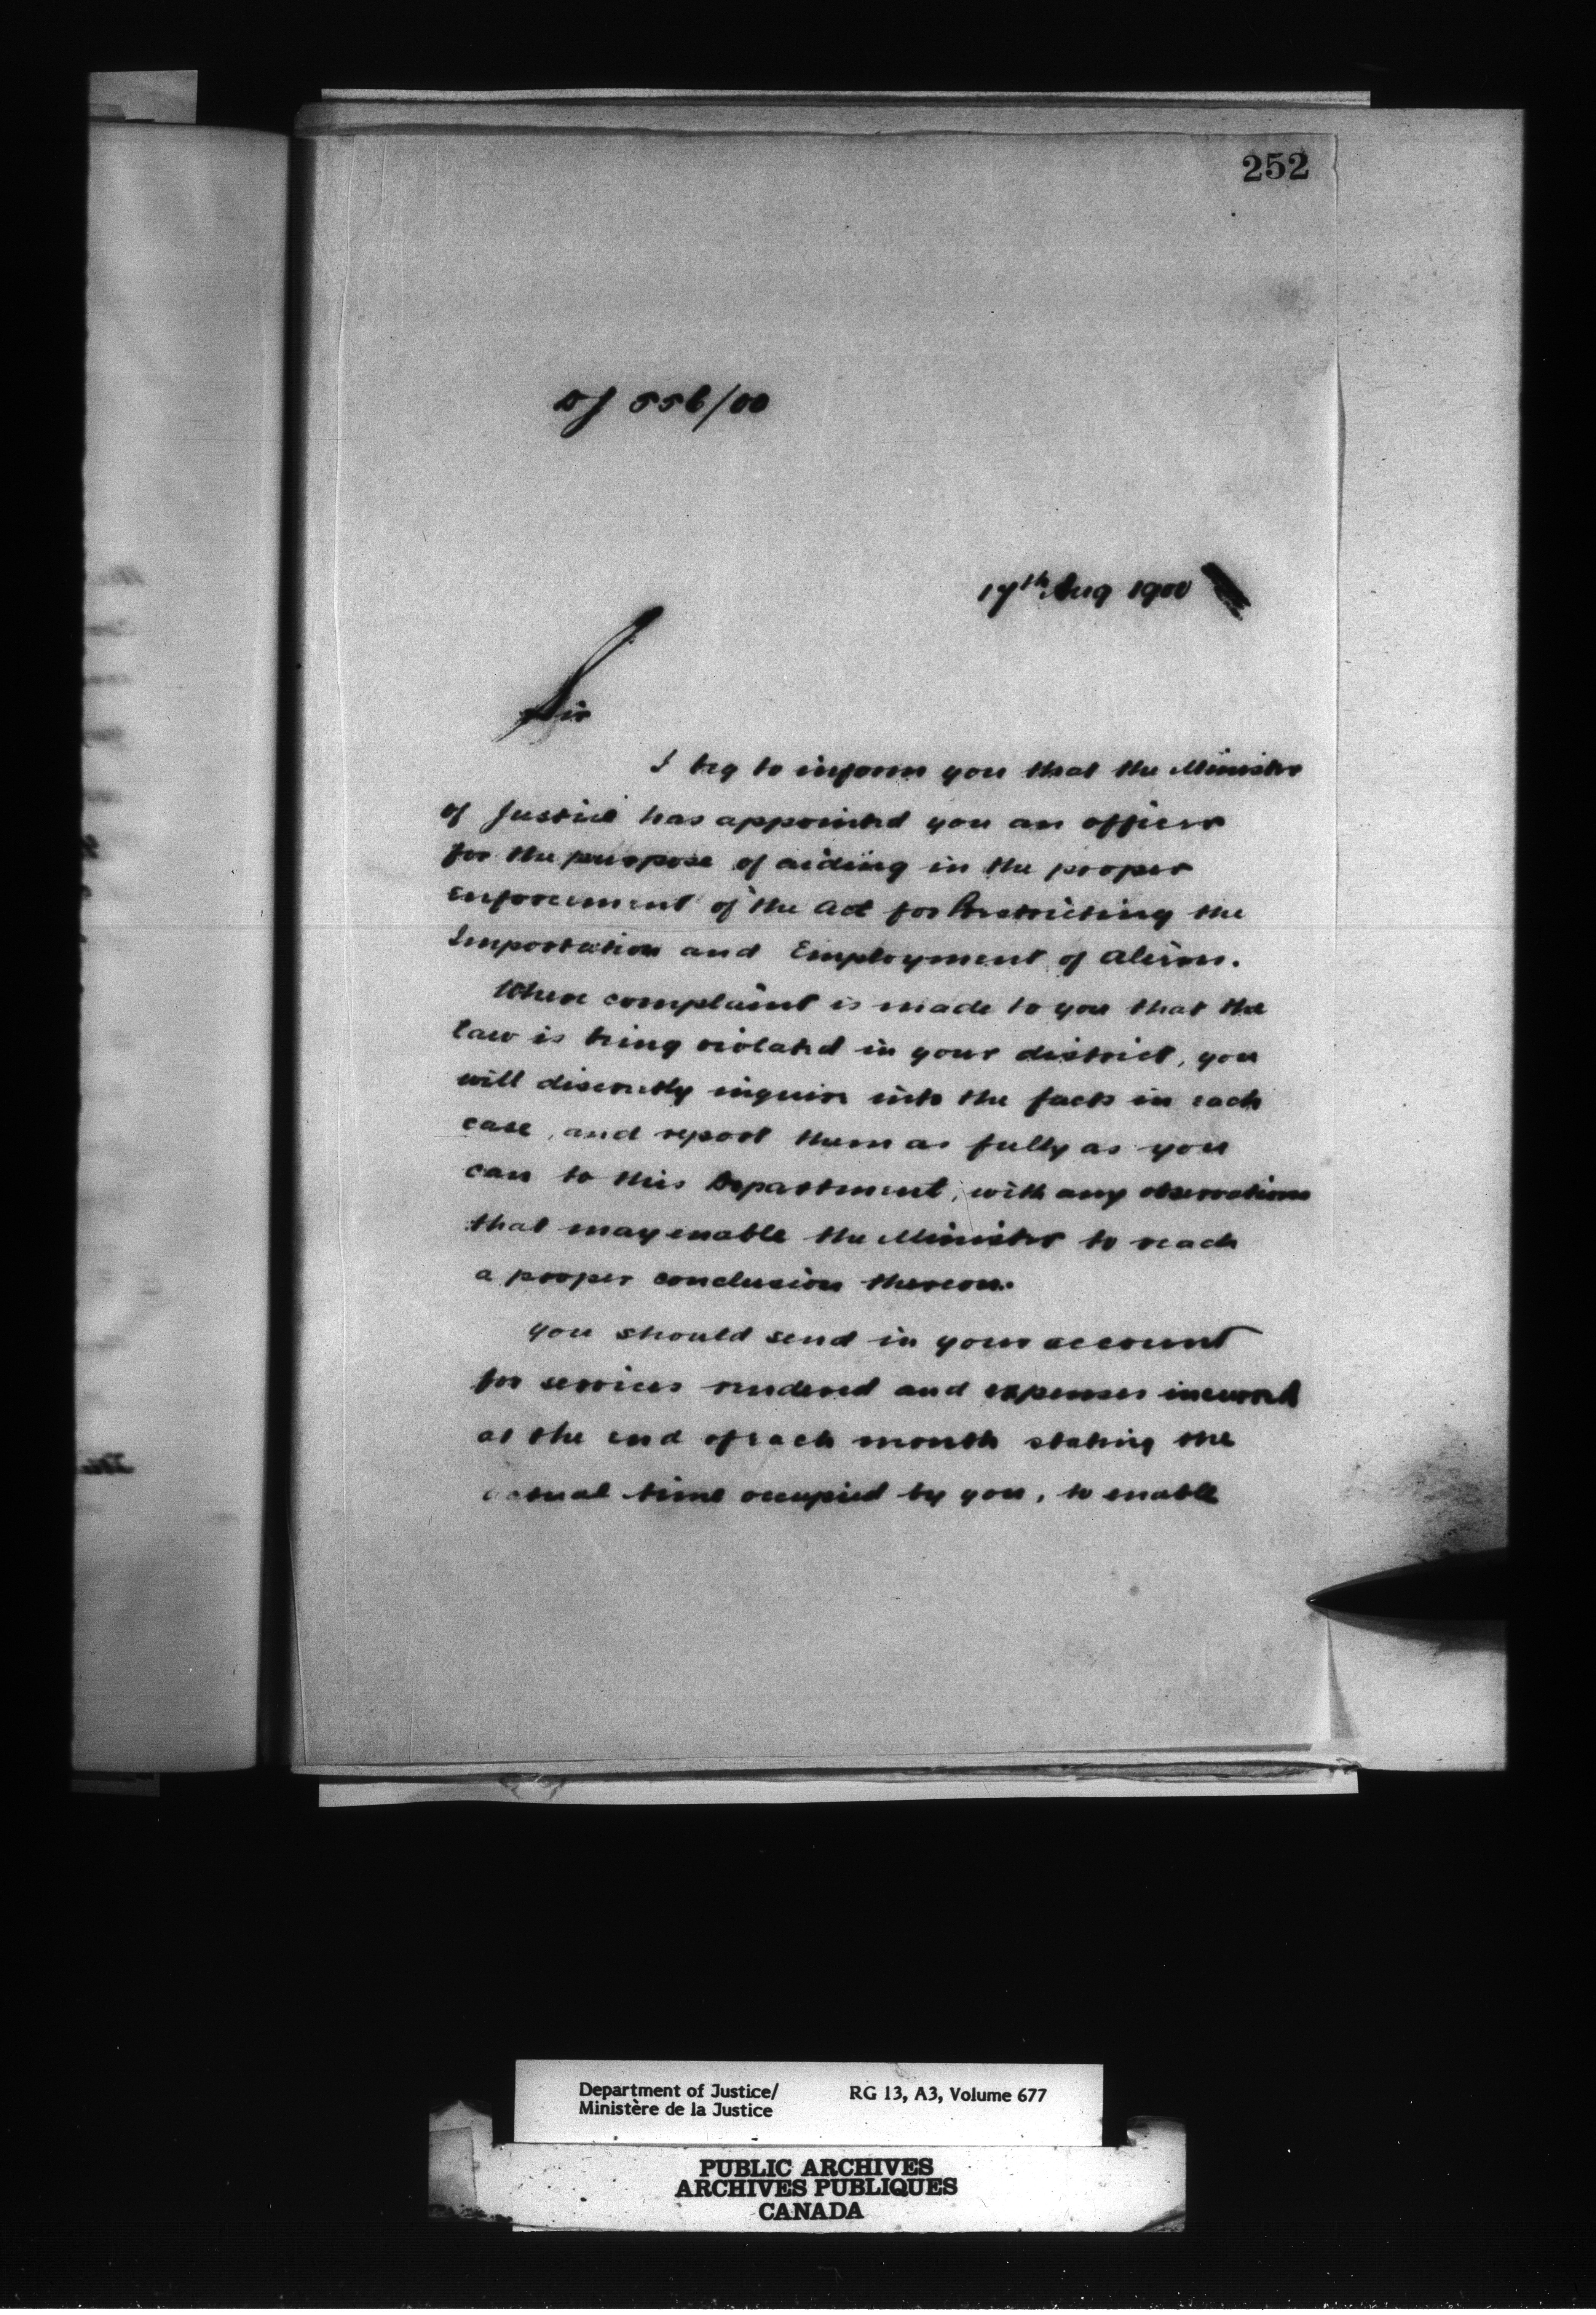 252
DJ 556/00
17th Aug 1900
Sir
I beg to inform you that the Minister
of Justice has appointed you an officer
for the purpose of aiding in the proper
enforcement of the Act for Restricting the
Importation and Employment of Aliens.
Where complaint is made to you that the
law is being violated in your district, you
will discreetly inquire into the facts in each
case, and report them as fully as you
can to this Department, with any observations
that may enable the Minister to reach
a proper conclusion thereon.
You should send in your account
for services rendered and expenses incurred
at the end of each month stating the
actual time occupied by you, to enable
Department of Justice/ RG 13, A3, Volume 677
Ministère de la Justice
PUBLIC ARCHIVES
ARCHIVES PUBLIQUES
CANADA